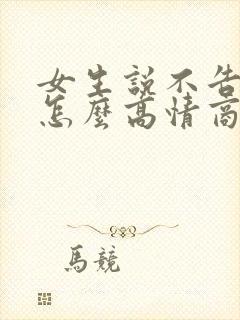 女生說不告
怎麼高情商
馬競